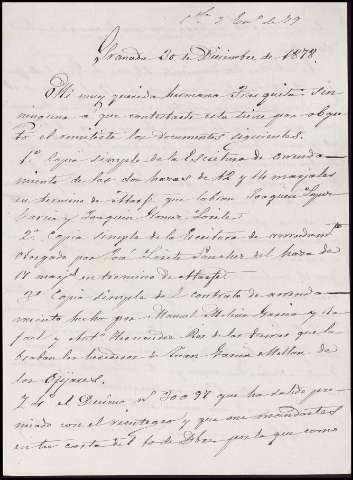 Granada 20 de Diciembre de 1878.
Mi muy querida hermana Frasquita: Sin
ninguna a que contestarte esta tiene por obge
to el remitirte los documentos siguientes.
1º Copia simple de la Escritura de arrenda
miento de las dos hazas de 12 y 14 marjales
en termino de Atarfe que labran Joaquin Lopez
Garcia y Joaquin
2º Copia simple de la Escritura de arrendamto
otorgada por José Sanchez del haza de
17 marjs en termino de Atarfe.
3º Copia simple de l contrato de arrenda
miento hecho por Manuel Molina Garcia y
y Antº Fernandez de las tierras que la
braban los herederos de Juan Garcia de
los Ogijares.
Y 4º el Decimo nº 30097 que ha salido pre
miado con el reintegro y que me mandastes
en tu carta del de Dbre por la que como